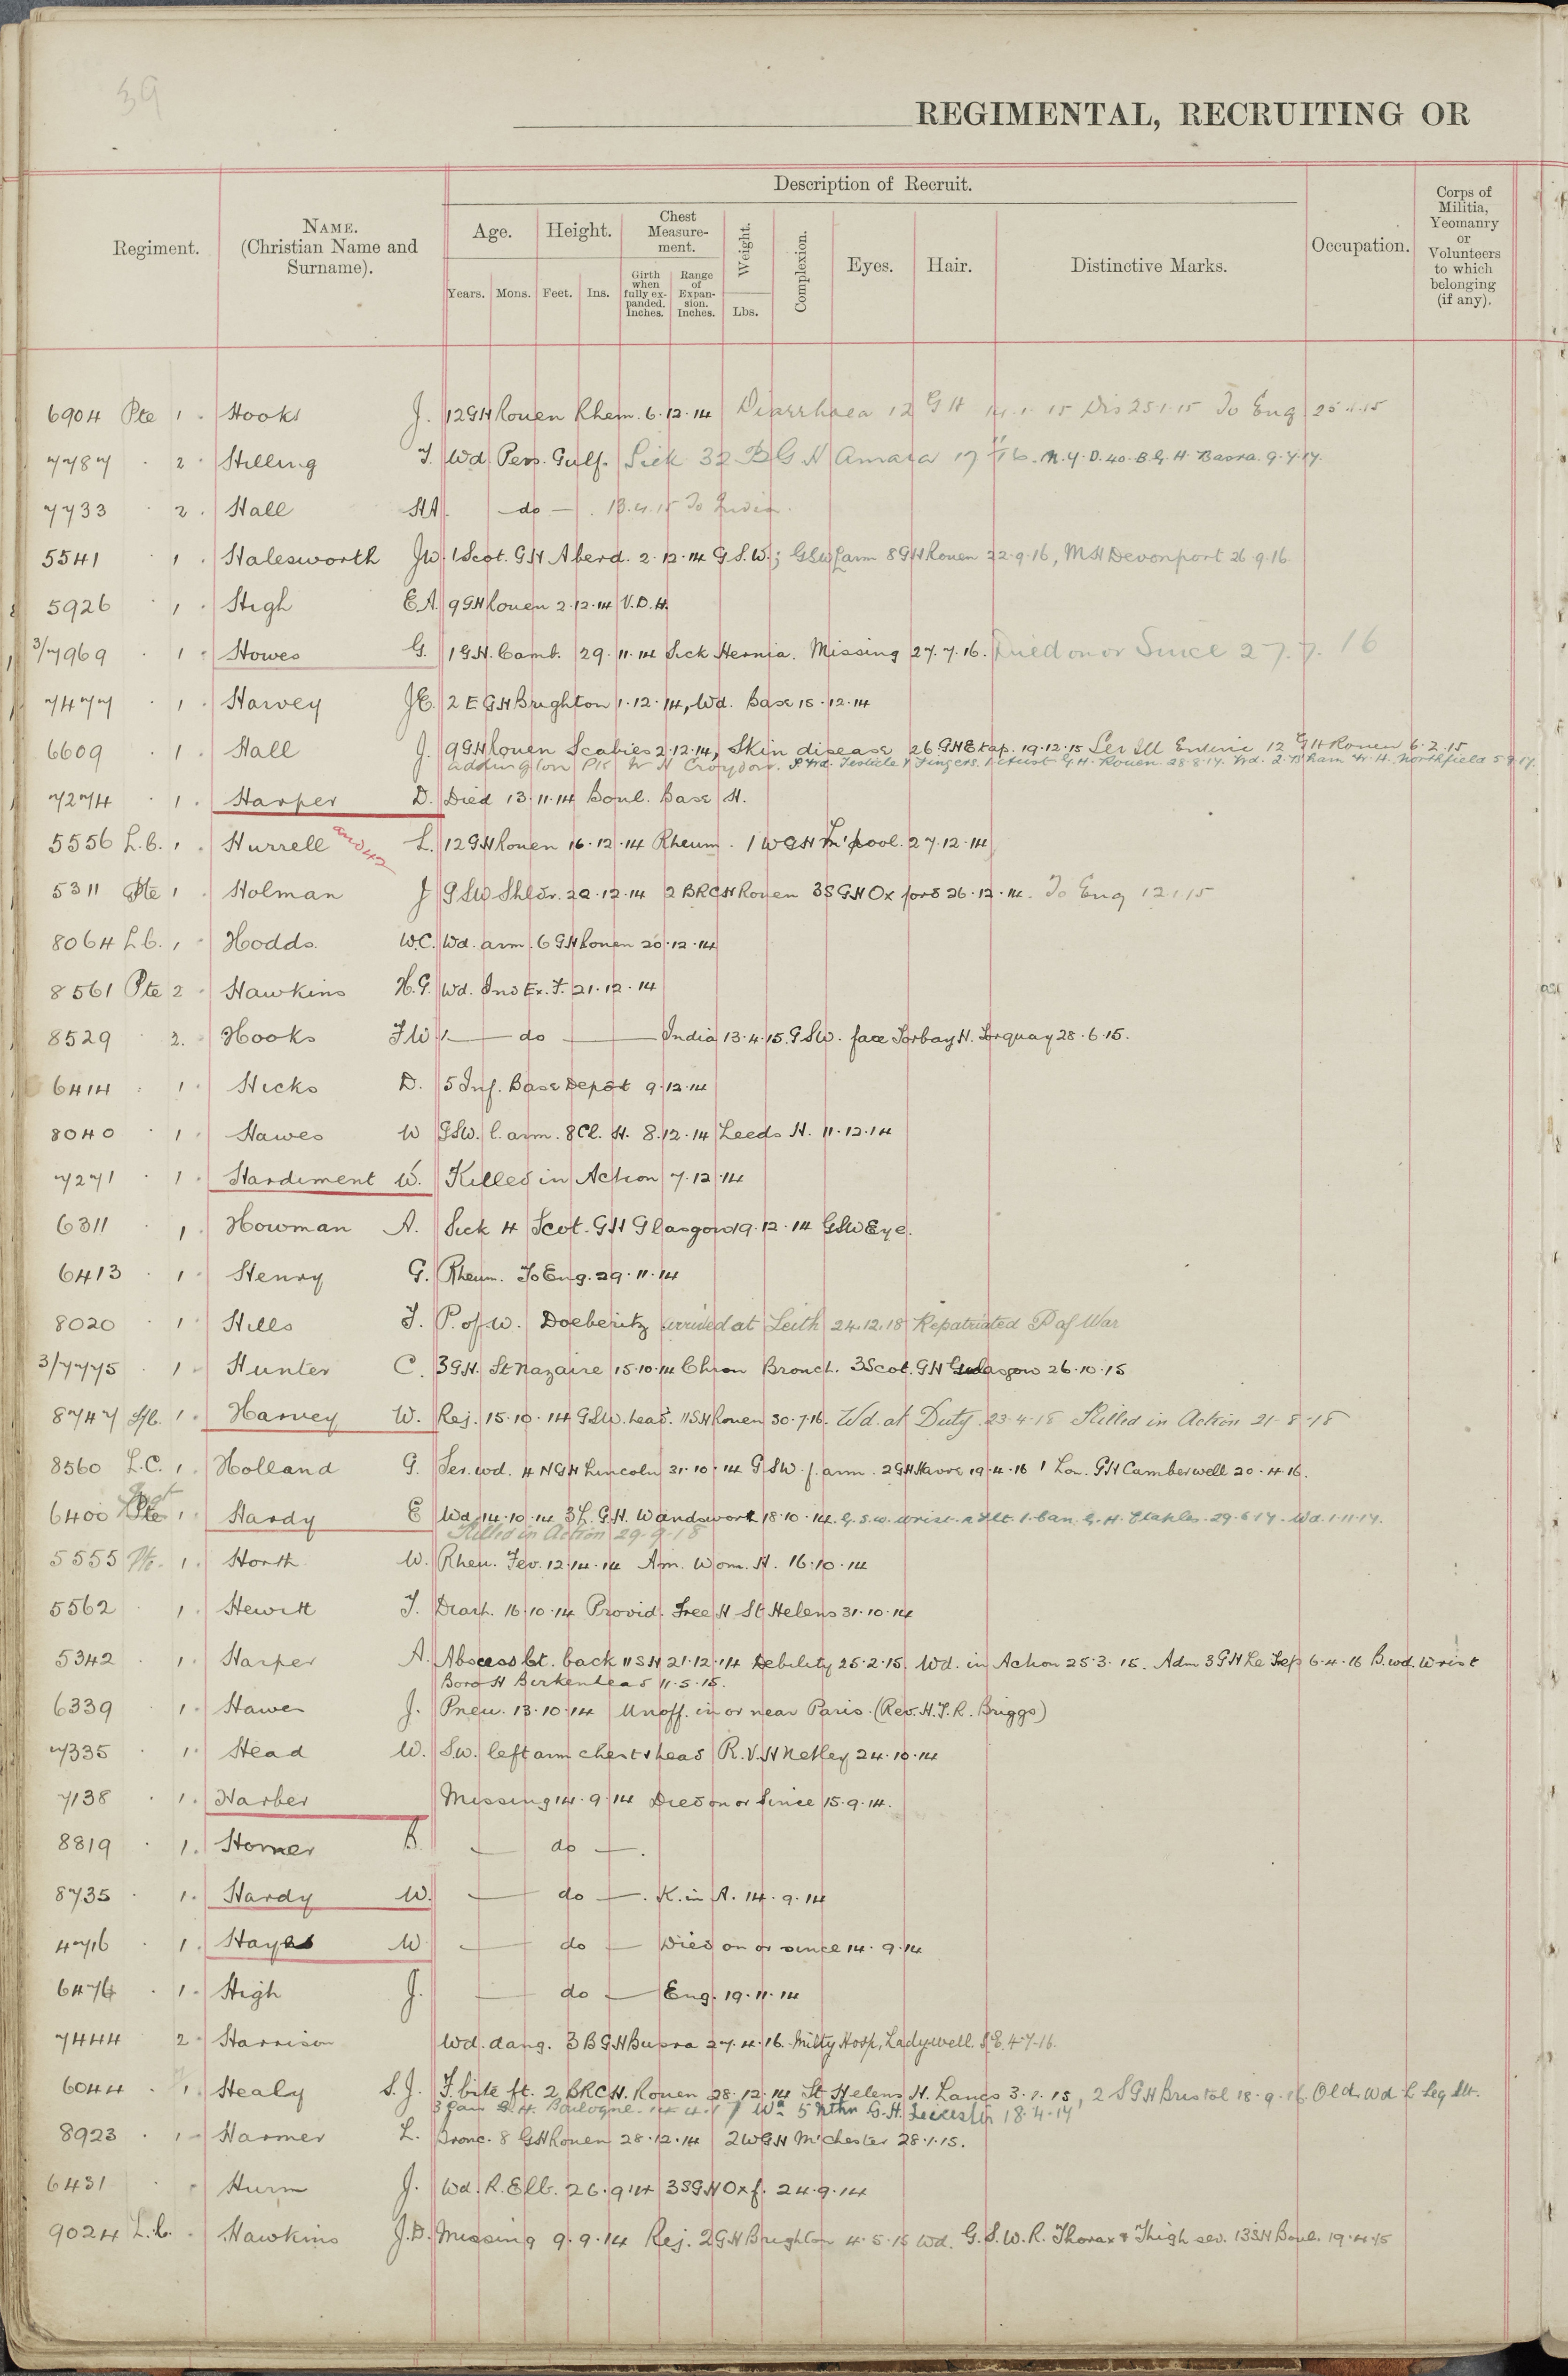 39
REGIMENTAL, RECRUITING OR
Regiment.
NAME.
(Christian Name and
Surname).
Description of Recruit.
Age.
Height.
Chest
Measure-
ment.
Weight.
Complexion.
Eyes.
Hair.
Distinctive Marks.
Occupation.
Corps of
Militia,
Yeomanry
or
Volunteers
to which
belonging
(if any).
Years.
Mons.
Feet.
Ins.
Girth
when
fully ex-
panded.
Inches.
Range
of
Expan-
sion.
Inches.
Lbs.
6904 Pte 1 Hooks J. 12 GH Rouen Rhem. 6.12.14 Diarrhoea 12 GH 14.1.15 Dis 25.1.15 To Eng 25.1.15
7787 2 Hilling F. Wd Pers. Gulf. Sick 32 BGH Amara 17 16. N.Y.D. 40. B.G.H. Basra. 9.7.17.
7733 2 Hall HA. — do — . 13.4.15 To India.
5541 1 Halesworth JW. 1 Scot. GH Aberd. 2.12.14 G.S.W.; GSW arm 8 GH Rouen 22.9.16, MH Devonport 26.9.16
5926 1 High E.A. 9 GH Rouen 2.12.14 V.D.H.
3/7969 1 Howes G. 1 G.H. Camb. 29.11.14 Sick Hernia. Missing 27.7.16. Died on or Since 27.7.16
7477 1 Harvey J.E. 2 E GH Brighton 1.12.14, Wd. Base 15.12.14
6609 1 Hall J. 9 GH Rouen Scabies 2.12.14, Skin disease 26 GH Etap. 19.12.15 Ser Ill Enteric 12 GH Rouen 6.2.15
Addington Pk W H Croydon. Testicle & Fingers. 1 Aust G.H. Rouen. 28.8.17. Wd. 2. B'ham W.H. Northfield 5.9.17.
7274 1. Harper D. Died 13.11.14 Boul. Base H.
5556 L.C. 1 Hurrell L. 12 GH Rouen 16.12.14 Rheum. 1 WGH L'pool. 27.12.14
5311 Pte 1 Holman J GSW Shldr. 22.12.14 2 BRCH Rouen 3S GH Oxford 26.12.14. To Eng 12.1.15
8064 L.C. 1 Hodds. W.C. Wd. arm. 6 GH Rouen 20.12.14
8561 Pte 2 Hawkins H.G. Wd. Ind Ex. F. 21.12.14
8529 2. Hooks FW. — do — India 13.4.15. GSW. face Torbay H. Torquay 28.6.15.
6414 1 Hicks D. 5 Inf. Base Depôt 9.12.14
8040 1 Hawes W GSW. l. arm. 8 Cl. H. 8.12.14 Leeds H. 11.12.14
7271 1 Hardiment W. Killed in Action 7.12.14
6311 1 Howman A. Sick 4 Scot. GH Glasgow 19.12.14 GSW Eye.
6413 1 Henry G. Rheum. To Eng. 29.11.14
8020 1 Hills F. P. of W. Doeberitz arrived at Leith 24.12.18 Repatriated P of War
3/7775 1 Hunter C. 3 G.H. St Nazaire 15.10.14 Chron Bronch. 3 Scot. GH Glasgow 26.10.15
8747 1 Harvey W. Rej. 15.10.14 GSW. head. 11 SH Rouen 30.7.16. Wd. at Duty. 23.4.18 Killed in Action 21-8-18
8560 L.C. 1 Holland G. Ser. wd. 4 NGH Lincoln 31.10.14 GSW. f. arm. 2 GH Havre 19.4.16 1 Lon. GH Camberwell 20.4.16.
6400 Pte 1 Hardy E Wd. 14.10.14 3 L. G.H. Wandsworth 18.10.14. G.S.W. wrist. 1. Can. G.H. Etaples. 29.6.17. Wd. 1.11.17.
Killed in Action 29-9-18
5555 Pte. 1 Horth W. Rheu. Fev. 12.14.14 Am. Wom. H. 16.10.14
5562 1 Hewitt F. Diarh. 16.10.14 Provid. Free H St Helens 31.10.14
5342 1 Harper A. Abscess bt. back 11 SH 21.12.14 Debility 25.2.15. Wd. in Action 25.3.15. Adm 3 GH Le Trep 6.4.16 B.wd. Wrist
Boro H Birkenhead 11.5.15.
6339 1 Hawes J. Pneu. 13.10.14 Unoff. in or near Paris. (Rev. H.F.R. Briggs)
7335 1 Head W. S.W. left arm chest & head R.V.H Netley 24.10.14
7138 1. Harber Missing 14.9.14 Died on or Since 15.9.14.
8819 1. Horner B — do — .
8735 1. Hardy W. — do — . K. in A. 14.9.14
4716 1. Hayes W — do — Died on or since 14.9.14
6474 1 High J. — do — Eng. 19.11.14
7444 2 Harrison Wd. dang. 3 BGH Busra 27.4.16. Milty Hosp. Ladywell. S.E. 4-7-16.
6044 1 Healy S.J. F. bite ft. 2 BRCH. Rouen 28.12.14 St Helens H. Lancs 3.1.15, 2 SGH Bristol 18.9.16. Old. Wd L Leg Slt.
3 Can G.H. Boulogne. 14.4.17 Wd 5 Nthn G.H. Leicester 18.4.17
8923 1 Harmer L. Bronc. 8 GH Rouen 28.12.14 2 WGH M'chester 28.1.15.
6431 Hurm J. Wd. R. Elb. 26.9.14 3SGH Oxf. 24.9.14
9024 L.C. Hawkins J.D. Missing 9.9.14 Rej. 2 GH Brighton 4.5.15 Wd. G.S.W. R. Thorax & Thigh sev. 13 SH Boul. 19.4.15